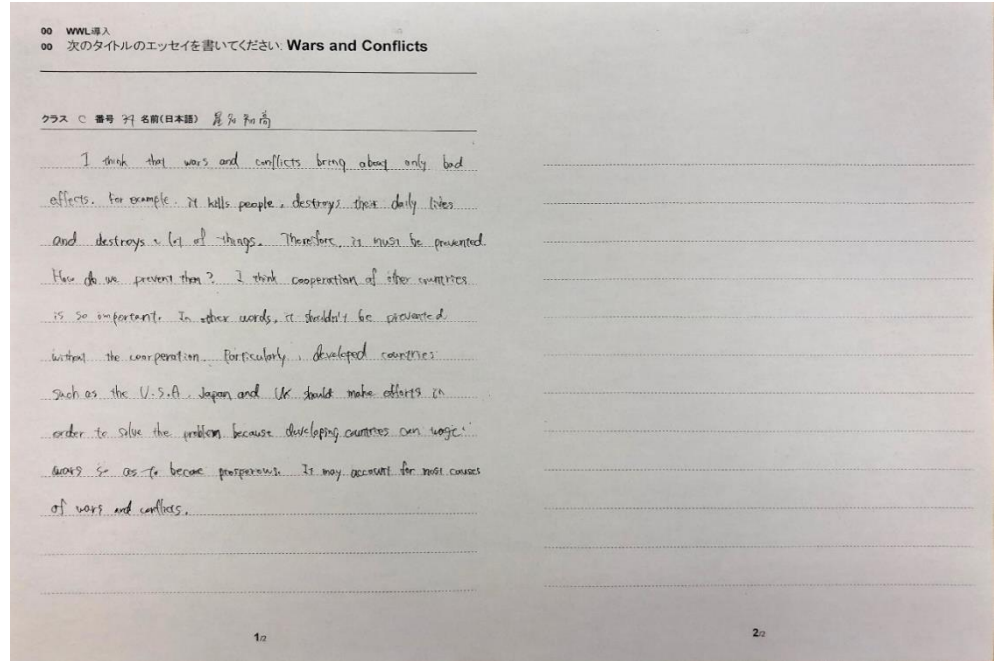 00 WWL導入
00 次のタイトルのエッセイを書いてください: Wars and Conflicts
クラス C 番号 39 名前(日本語) 尾名 知尚
I think that wars and conflicts bring about only bad
effects. For example, it kills people, destroys their daily lives
and destroys a lot of things. Therefore, it must be prevented.
How do we prevent them? I think cooperation of other countries
is so important. In other words, it shouldn't be prevented
without the coorperation. Particularly, developed countries
such as the U.S.A, Japan and UK should make efforts in
order to solve the problem because developing countries can wage
wars so as to become prosperous. It may account for most causes
of wars and conflicts.
1/2
2/2